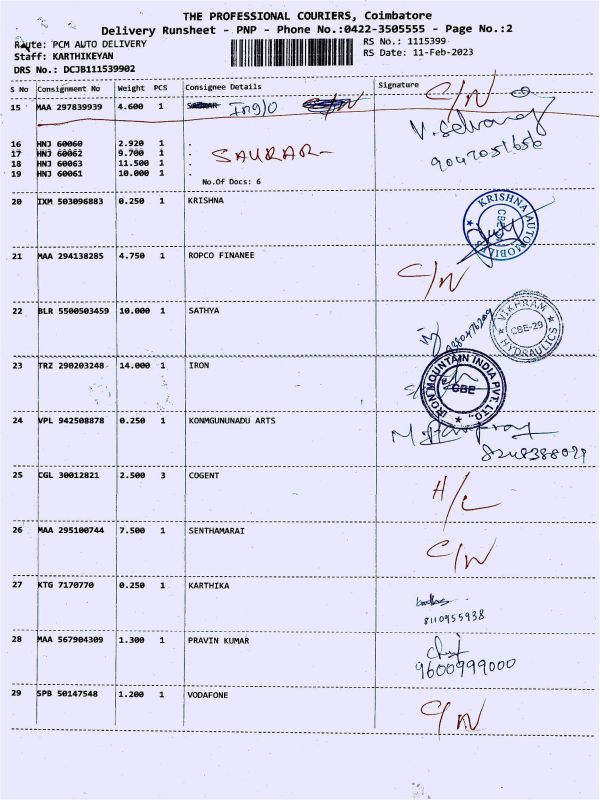 THE PROFESSIONAL COURIERS, Coimbatore
Delivery Runsheet - PNP - Phone No.:0422-3505555 - Page No.:2
Route: PCM AUTO DELIVERY RS No.: 1115399
Staff: KARTHIKEYAN RS Date: 11-Feb-2023
DRS No.: DCJB111539902
S No Consignment No Weight PCS Consignee Details Signature
15 MAA 297839939 4.600 1 C/N
V. Selvaraj
16 HNJ 60060 2.920 1 .
17 HNJ 60062 9.700 1 . SAURAR
18 HNJ 60063 11.500 1 .
19 HNJ 60061 10.000 1 .
No.Of Docs: 6
20 IXM 503096883 0.250 1 KRISHNA
KRISHNA AUTOMOBILES
CBE
21 MAA 294138285 4.750 1 ROPCO FINANEE C/N
22 BLR 5500503459 10.000 1 SATHYA
VIKHRAM HYDRAULICS
CBE-29
23 TRZ 290203248 14.000 1 IRON
IRON MOUNTAIN INDIA PVT. LTD.,
CBE
24 VPL 942508878 0.250 1 KONMGUNUNADU ARTS
25 CGL 30012821 2.500 3 COGENT H/L
26 MAA 295100744 7.500 1 SENTHAMARAI C/N
27 KTG 7170770 0.250 1 KARTHIKA
8110955938
28 MAA 567904309 1.300 1 PRAVIN KUMAR
9600999000
29 SPB 50147548 1.200 1 VODAFONE C/N